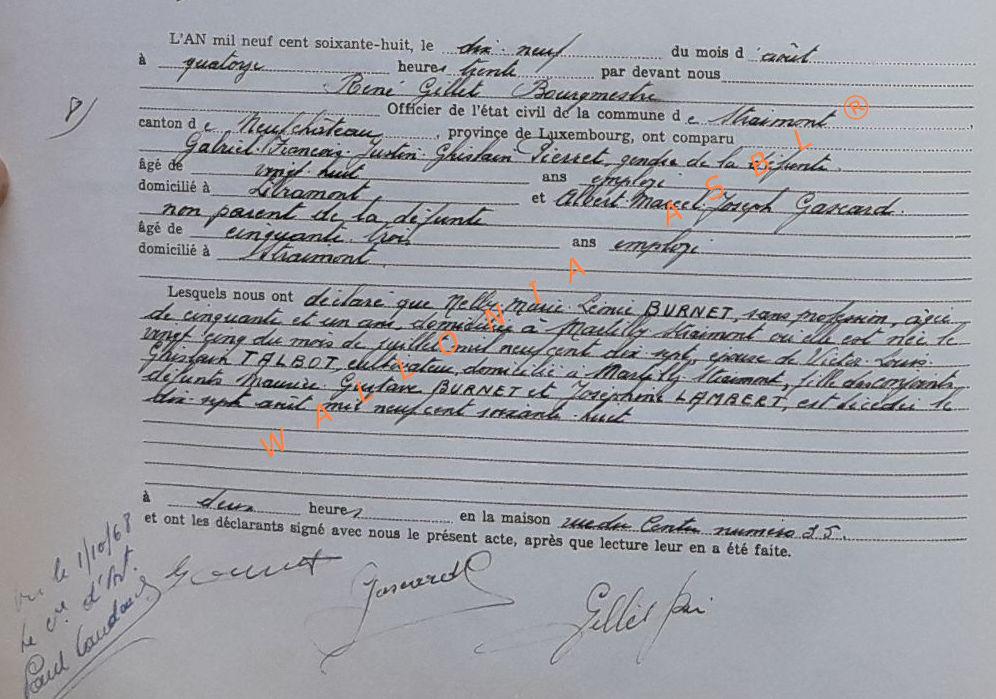 8)
L'AN mil neuf cent soixante-huit, le dix-neuf du mois d' août
à quatorze heures trente par devant nous
René Gillet Bourgmestre
Officier de l'état civil de la commune de Straimont,
canton de Neufchâteau, province de Luxembourg, ont comparu
Gabriel-François-Justin-Ghislain Pierret, gendre de la défunte
âgé de vingt huit ans employé
domicilié à Libramont et Albert-Marcel-Joseph Gascard.
non parent de la défunte
âgé de cinquante trois ans employé
domicilié à Straimont
Lesquels nous ont déclaré que Nelly-Marie-Léonie BURNET, sans profession, âgée
de cinquante et un ans, domiciliée à Martilly Straimont où elle est née le
vingt cinq du mois de juillet mil neuf cent dix sept, épouse de Victor-Louis-
Ghislain TALBOT cultivateur, domicilié à Martilly Straimont, fille des conjoints
défunts Maurice-Gustave BURNET et Joséphine LAMBERT, est décédée le
dix sept août mil neuf cent soixante huit
à deux heures en la maison rue du Centre numéro 35.
et ont les déclarants signé avec nous le présent acte, après que lecture leur en a été faite.
Vu le 1/10/68
Le d'Art.
Paul
Gascard
Gillet
WALLONIA ASBL ®